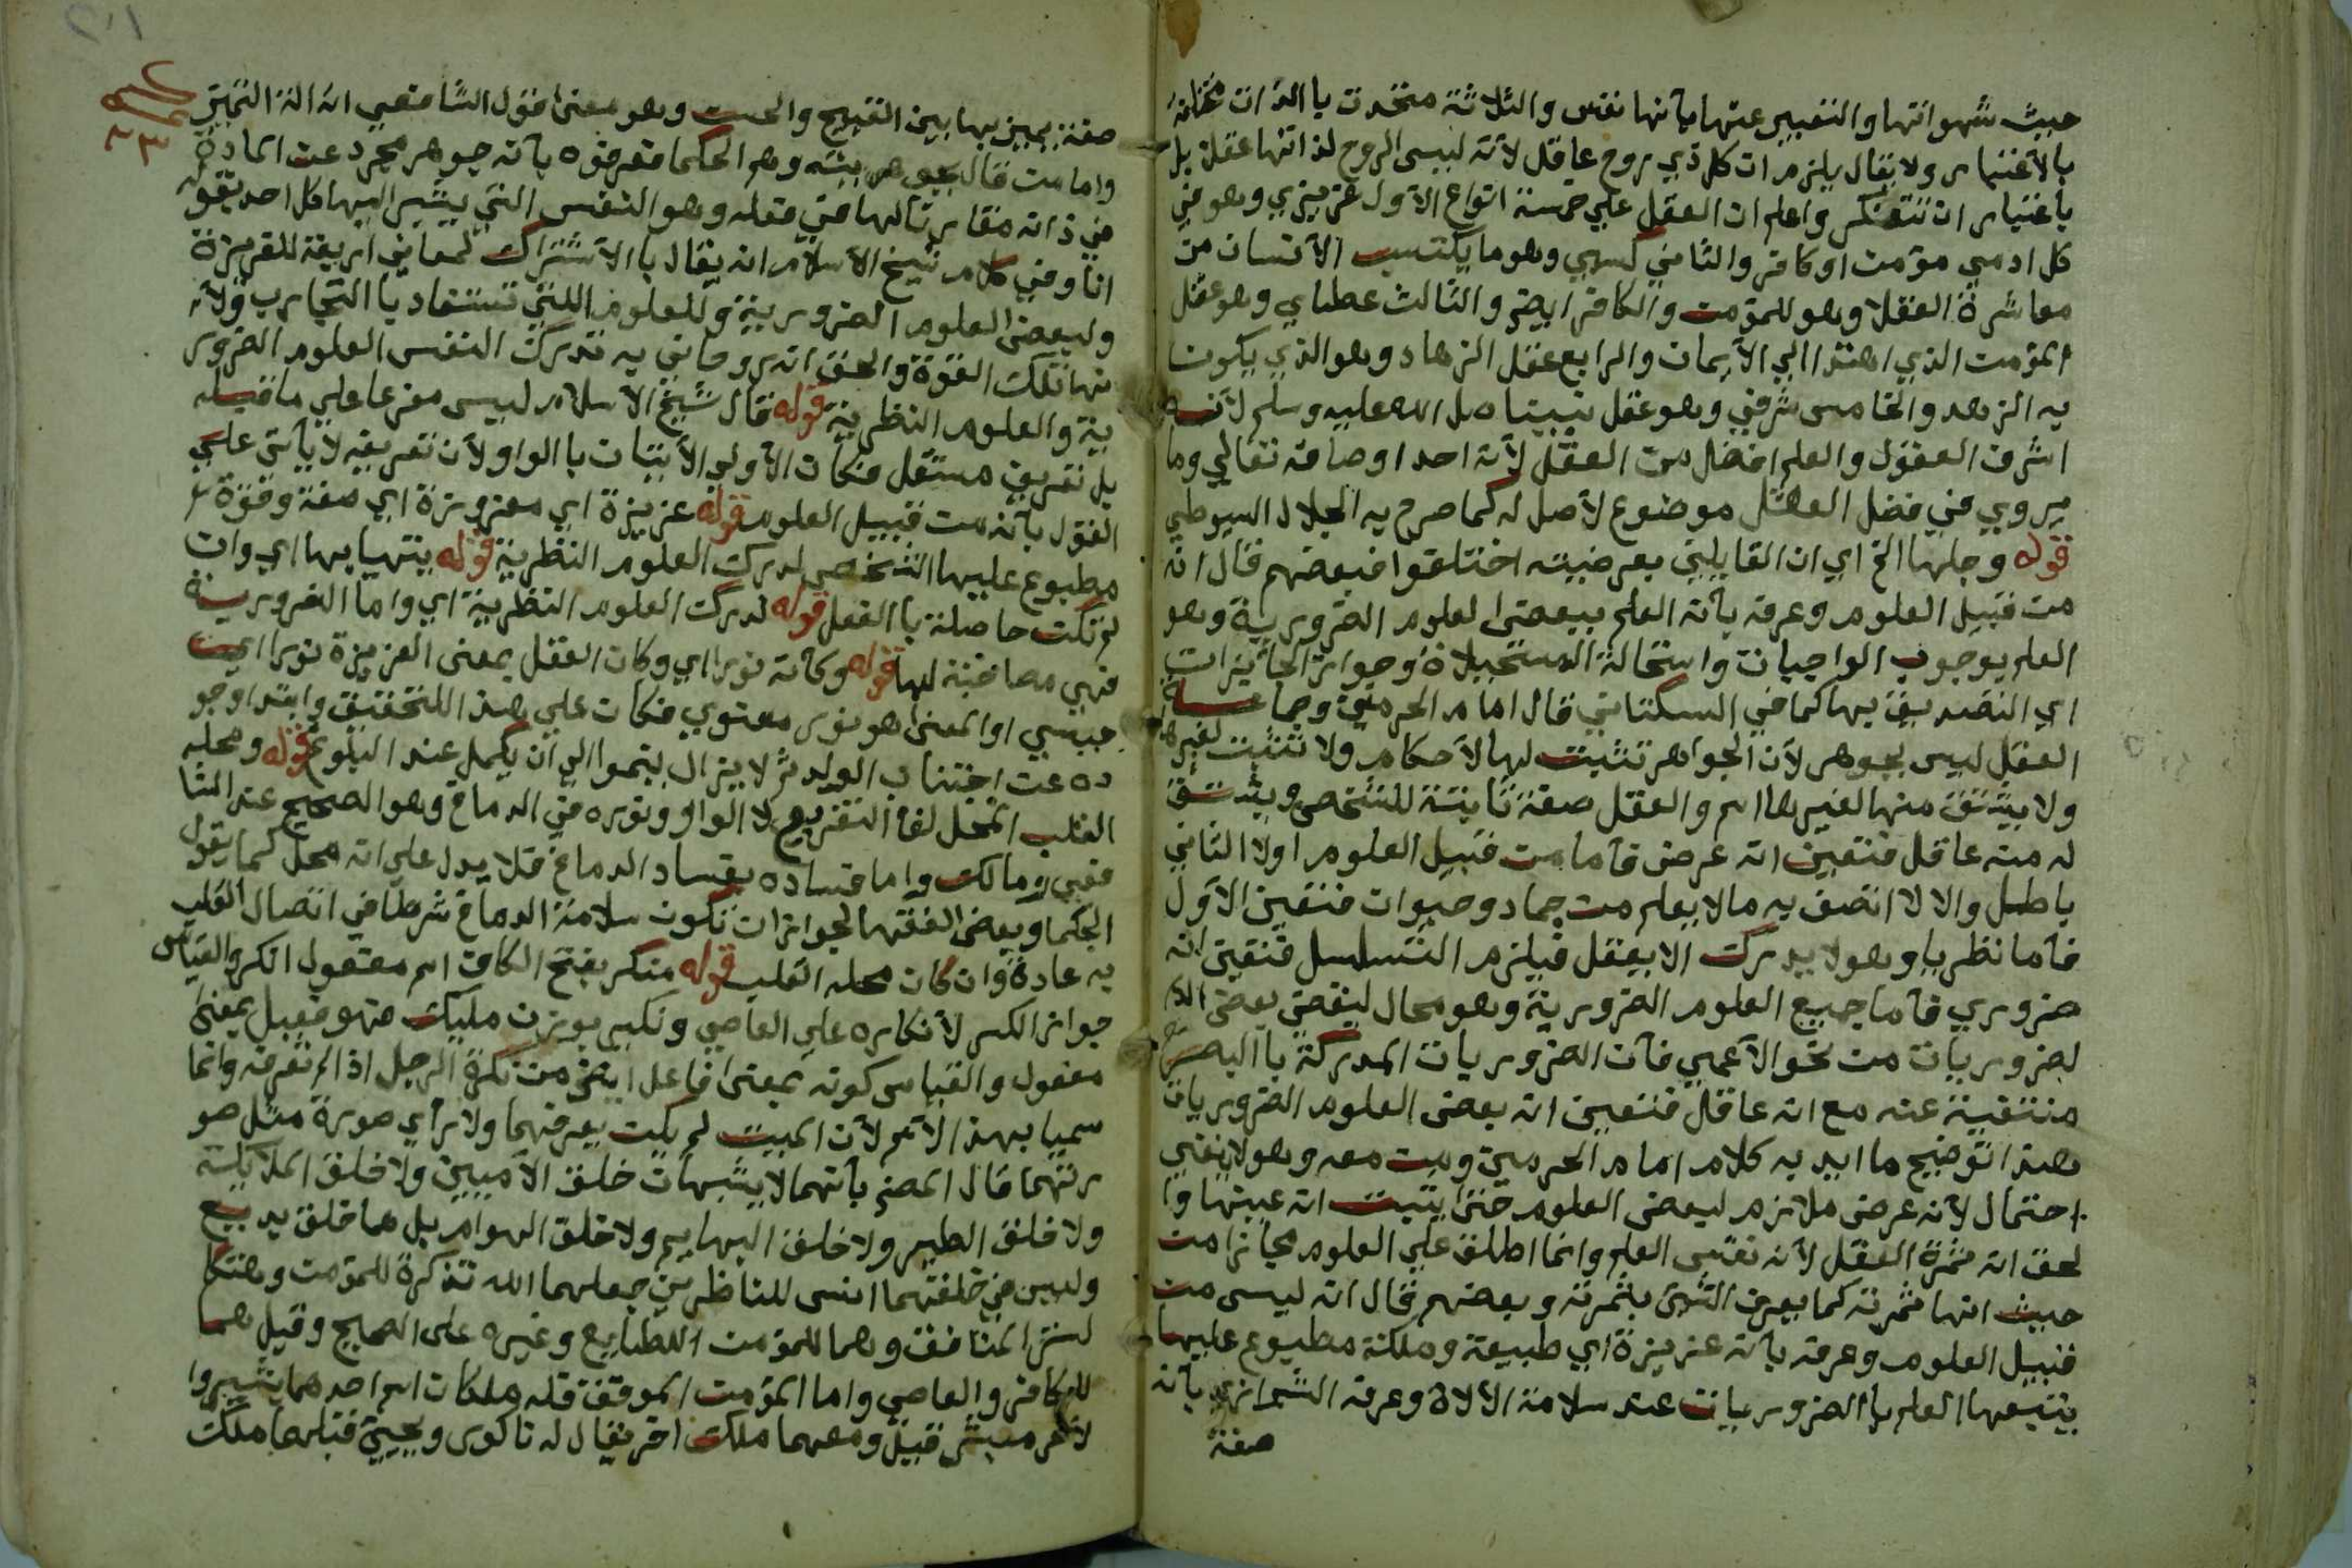 حيث شهوانتها والتعبير عنها بأنها نفس والثلاثة متحدت باالذات مختلفة
بالأعتبار ولا يقال يلزم ان كل ذي روح عاقل لأنه ليس الروح لذاتها عقلا بل
باعتبار ان تتفكر واعلم ان العقل علي خمسة انواع الأول غريزي وهو في
كل ادمي مؤمن او كافر والثاني كسبي وهو ما يكتسب الأنسان من
معاشرة العقلا وهو للمؤمن والكافر ايضا والثالث عطاي وهو عقل
المؤمن الذي اهتدا الي الأيمان والرابع عقل الزهاد وهو الذي يكون
به الزهد والخامس شرفي وهو عقل نبينا صل الله عليه وسلم لأنه
اشرف العقول والعلم افضل من العقل لأنه احد اوصافه تعالي وما
يروي في فضل العقل موضوع لأصل له كما صرح به الجلال السيوطي
قوله وجلها الخ اي ان القايلين بعرضيته اختلفوا فبعضهم قال انه
من قبيل العلوم وعرفه بأنه العلم ببعض العلوم الضرورية وهو
العلم بوجوب الواجبات واستحالة المستحيلاة وجواز الجأيزات
اي التصديق بها كما في السكتاني قال امام الحرمين وجماعة
العقل ليس بجوهر لأن الجواهر تثبت لها لأحكام ولا تثبت لغيرها
ولا يشتق منها لغيرها اسم والعقل صفة ثابتة للشخص ويشتق
له منه عاقل فتعين انه عرض فأما من قبيل العلوم اولا الثاني
باطل والا لا اتصف به مالا يعلم من جماد وحيوان فتعين الأول
فأما نظريا وهو لا يدرك الا بعقل فيلزم التسلسل فتعين انه
ضروري فأما جميع العلوم الضرورية وهو محال لينقص بعض
لضروريات من نحو الأعمي فأن الضروريات المدركة باالبصر
منتفية عنه مع انه عاقل فتعين انه بعض العلوم الضروريات
هذا توضيح ما ايد به كلام امام الحرمين ومن معه وهو لا ينفي
احتمال لأنه عرض ملازم لبعض العلوم حتي يثبت انه عينها وا
لحق انه ثمرة العقل لأن نفس العلم وانما اطلق علي العلوم مجازا من
حيث انها ثمرته كما يعرف الشئ بثمرته وبعضهم قال انه ليس من
قبيل العلوم وعرفه بأنه غريزة اي طبيعة وملكة مطبوع عليها
يتبعها العلم باالضروريات عند سلامة الألاة وعرفه الشيرازي بأنه
صفة
صفة يميز بها بين القبيح والحسن وهو معني قول الشافعي انه الة التميز
واما من قال بجوهريته وهم الحكما فعرفوه بأنه جوهر مجرد عن المادة
في ذاته مقارنا لها في فعله وهو النفس التي يشير اليها كل احد بقوله
انا وفي كلام شيخ الأسلام انه يقال باالأشتراك لمعاني اربعة للغريزة
ولبعض العلوم الضرورية وللعلوم اللتي تستفاد باالتجارب ولأ
نها تلك القوة والحق انه روحاني به تدرك النفس العلوم الضرور
ية والعلوم النظرية قوله فقال شيخ الأسلام ليس مفرعا علي ما قبله
بل تفريق مستقل فكان الأولي الأتيان باالواو ولأن تعريفه لا يأتي علي
القول بأنه من قبيل العلوم قوله غريزة اي مغروزة اي صفة وقوة
مطبوع عليها الشخص لدرك العلوم النظرية قوله يتهيا بها اي وان
لم تكن حاصلة باالفعل قوله لدرك العلوم النظرية اي واما الضرورية
فهي مصاحبة لها قوله وكأنه نورا اي وكان العقل بمعني الغريزة نورا اي
حسي او المعني هو نور معنوي فكان علي هذا للتحقيق وابتدا وجو
ده عن اجتنان الولد ثم لا يزال ينموا الي ان يكمل عند البلوغ قوله ومحله
القلب لفا التفريع لا الواو ونوره في الدماغ وهو الصحيح عند الشا
فعي ومالك واما فساده بفساد الدماغ فلا يدل علي انه محله كما يقول
الحكما وبعض الفقها لجواز ان تكون سلامة الدماغ شرطا في اتصال القلب
به عادة وان كان محله القلب قوله منكر بفتح الكاف اسم مفعول انكر والقياس
جواز الكسر لأنكاره علي العاصي ونكير بوزن مليك فهو فعيل بمعني
مفعول والقياس كونه بمعني فاعل ايضا من نكرة الرجل اذا لم تعرفه وانما
سميا بهذا الأسم لأن الميت لم يكن يعرفهما ولا رأي صورة مثل صو
رتهما قال المص بأنهما لا يشبهان خلق الأميين ولا خلق الملايكة
ولا خلق الطير ولا خلق البهايم ولا خلق الهوام بل هما خلق بديع
وليس في خلقتهما انس للناظرين جعلهما الله تذكرة للمؤمن وهتكا
لستر المنافق وهما للمؤمن الطايع وغيره على الصحيح وقيل هما
للكافر والعاصي واما المؤمن الموفق فله ملكان اسم احدهما بشيروا
لأخر مبشر قيل ومعهما ملك اخر يقال له ناكور ويجيئ قبلهما ملك